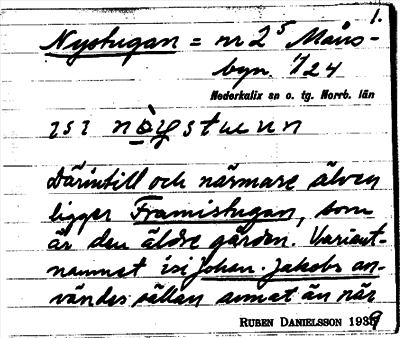 1.
Nystugan = nr 2⁵ Måns-
byn. 7/24
Nederkalix sn o. tg. Norrb. län
isi nỳstuunn
Därintill och närmare älven
ligger Framistugan, som
är den äldre gården. Variant-
namnet isi Johan-Jakobs an-
vändes sällan annat än när
RUBEN DANIELSSON 1939